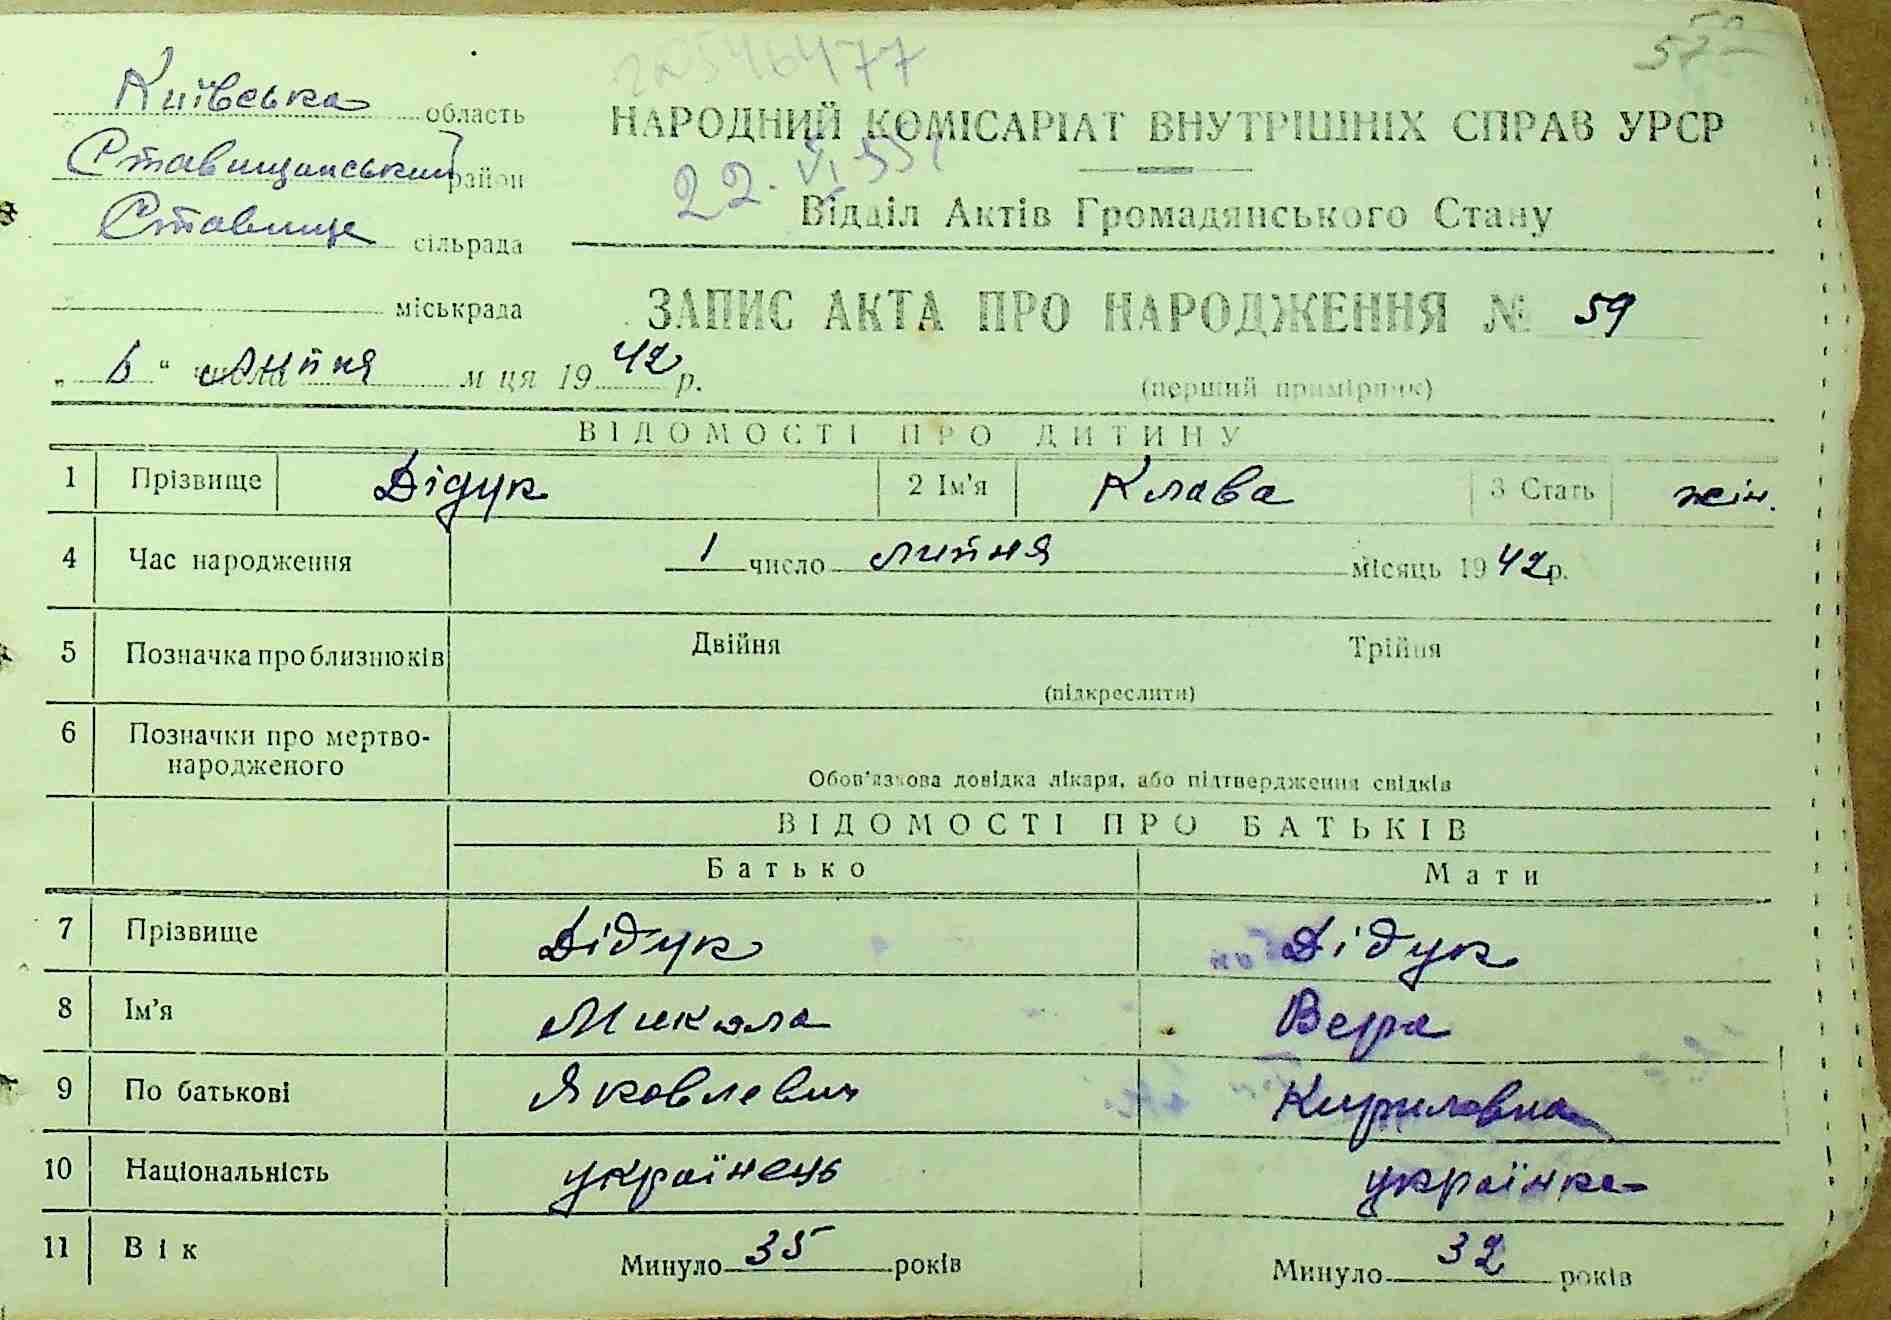 57
Київська область
Ставищанський район
Ставище сільрада
міськрада
НАРОДНИЙ КОМІСАРІАТ ВНУТРІШНІХ СПРАВ УРСР
22. VI.
Відділ Актів Громадянського Стану
ЗАПИС АКТА ПРО НАРОДЖЕННЯ № 59
(перший примірник)
„ 6 “ липня м ця 1942 р.
ВІДОМОСТІ ПРО ДИТИНУ
1 Прізвище Дідук 2 Ім'я Клава 3 Стать жін.
4 Час народження 1 число липня місяць 1942 р.
5 Позначка про близнюків Двійня Трійня
(підкреслити)
6 Позначки про мертво-
народженого
Обов'язкова довідка лікаря, або підтвердження свідків
ВІДОМОСТІ ПРО БАТЬКІВ
Батько Мати
7 Прізвище Дідук Дідук
8 Ім'я Микола Вера
9 По батькові Яковлевич Кириловна
10 Національність українець українка
11 Вік Минуло 35 років Минуло 32 років